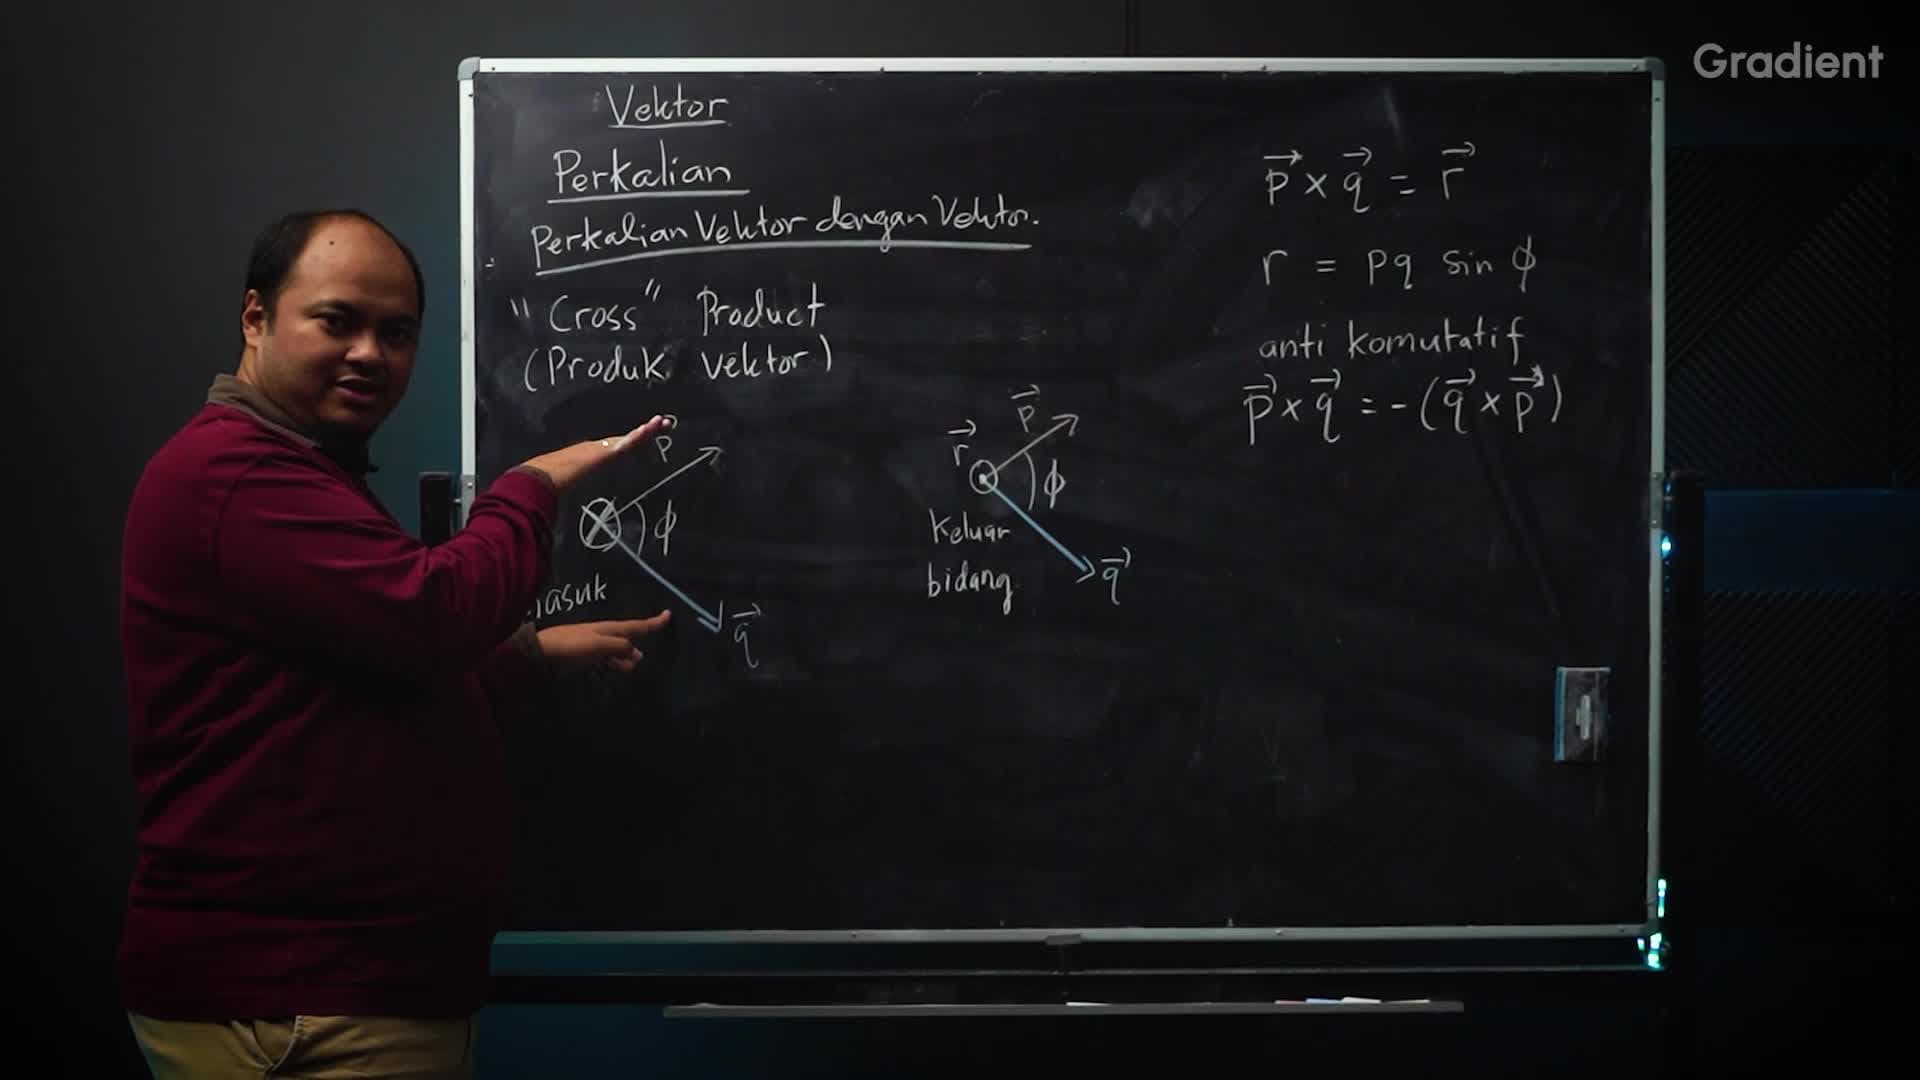 Gradient
Vektor
Perkalian
Perkalian Vektor dengan Vektor.
"Cross" Product
(Produk Vektor)
p⃗
ϕ
q⃗
p⃗
r⃗
ϕ
Keluar
bidang
q⃗
p⃗ × q⃗ = r⃗
r = pq sin ϕ
anti komutatif
p⃗ × q⃗ = -(q⃗ × p⃗)